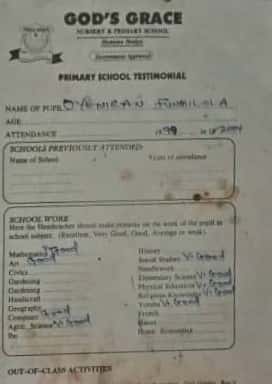 GOD'S GRACE
NURSERY & PRIMARY SCHOOL
(Government Approved)
PRIMARY SCHOOL TESTIMONIAL
NAME OF PUPIL OYENIRAN FUNMILOLA
AGE
ATTENDANCE
SCHOOLS PREVIOUSLY ATTENDED
Name of School Years of attendance
SCHOOL WORK
Here the Headteacher should make remarks on the work of the pupil in
school subject. (Excellent, Very Good, Good, Average or weak)
Mathematics Good History
Art Good Social Studies V. Good
Civics Needlework
Gardening Elementary Science V. Good
Gardening Physical Education V. Good
Handicraft Religious Knowledge V. Good
Geography Yoruba V. Good
Computer Good French
Agric. Science V. Good Music
Home Economics
OUT-OF-CLASS ACTIVITIES